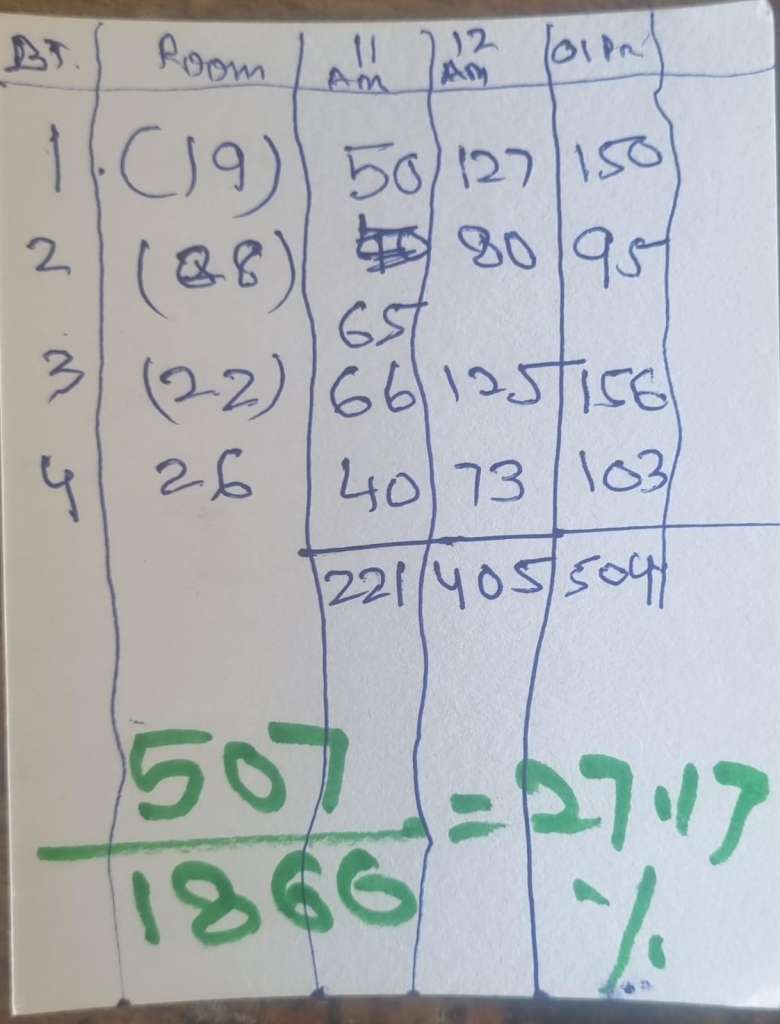 BT. Room 11 Am 12 Am 01 Pm
1. (19) 50 127 150
2 (28) 80 95
65
3 (22) 66 125 156
4 26 40 73 103
221 405 504
507
1866
= 27.17
%